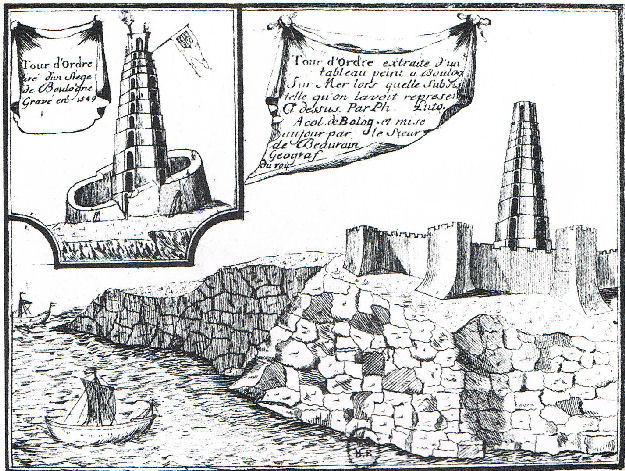 Tour d'Ordre
tré d'un Siege
de Boulogne
Gravé en 1549
Tour d'Ordre extraite d'un
tableau peint a Boulog
Sur Mer lors quelle Subsis
telle qu'on lavoit represen
Cy dessus. Par Ph. Luto.
Acol. de Bolog. et mise
aujour par le Sieur
de Beaurain
Geograf
Du roy